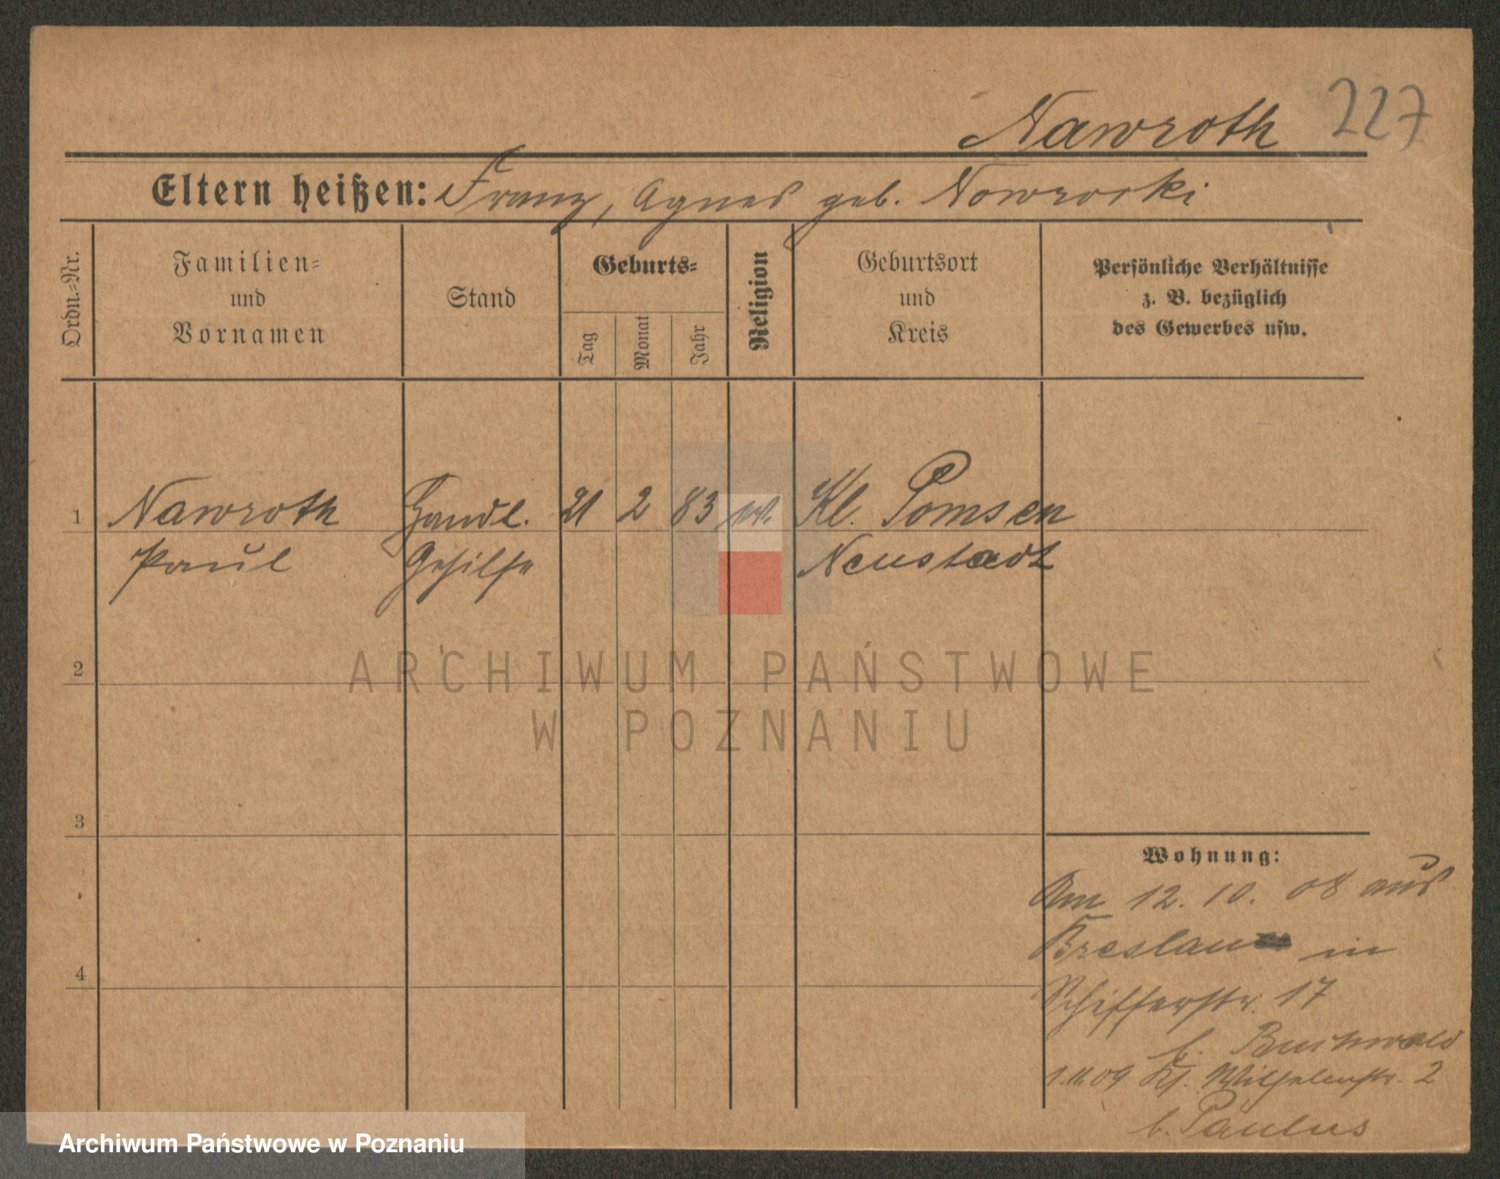 Nawroth 227
Eltern heißen: Franz, Agnes geb. Nowrocki
Ordn.-Nr.
Familien-
und
Vornamen
Stand
Geburts-
Tag
Monat
Jahr
Religion
Geburtsort
und
Kreis
Persönliche Verhältnisse
z. B. bezüglich
des Gewerbes usw.
1 Nawroth Handl. 21 2 83 Kl. Pomsen
Paul Gehilfe Neustadt
2
ARCHIWUM PAŃSTWOWE
W POZNANIU
3
Wohnung:
Am 12. 10. 08 aus
Breslau in
4
Schifferstr. 17
b. Buchwald
1.11.09 Kl. Wilhelmstr. 2
b. Paulus
Archiwum Państwowe w Poznaniu